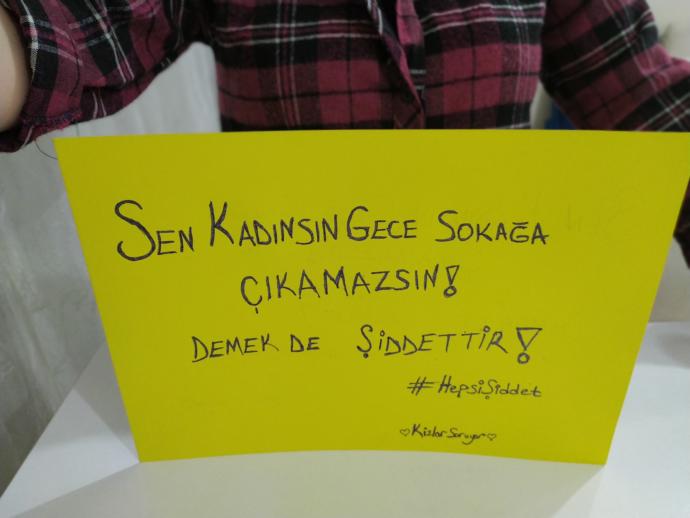 SEN KADINSIN GECE SOKAĞA
ÇIKAMAZSIN!
DEMEK DE ŞİDDETTİR!
#HepsiŞiddet
♡KızlarSoruyor♡